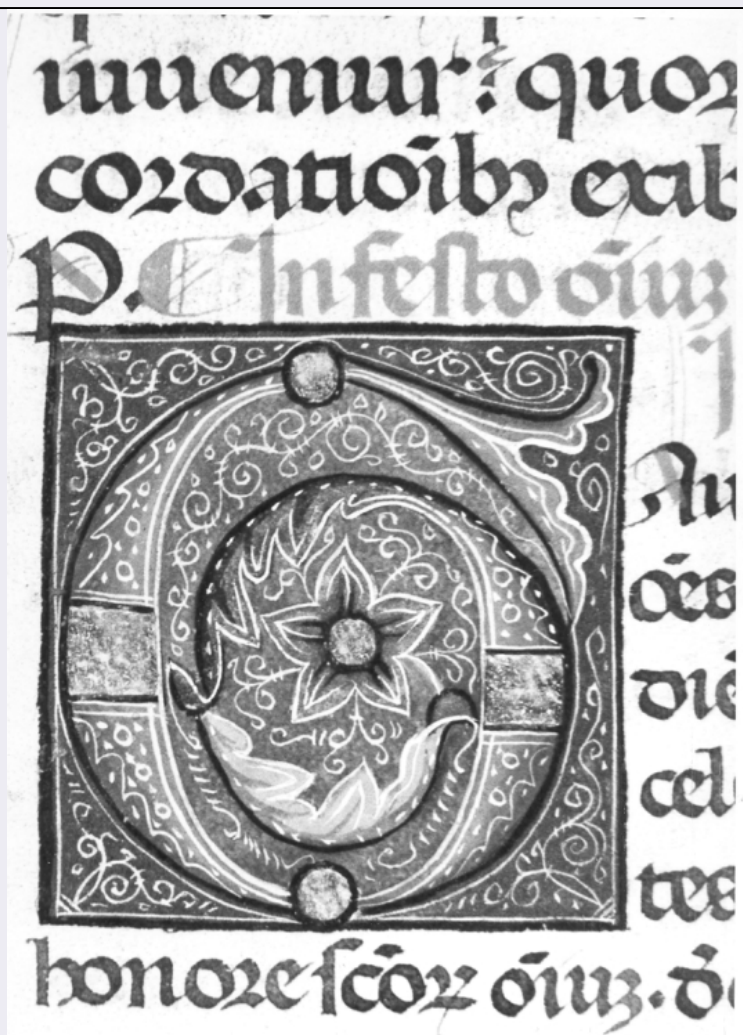 iuuemur? quor
cordatiōibꝫ exib
P. In festo oīuꝫ
Gau
ōēs
diē
cel
tes
honore scōꝝ oīuꝫ. d̄